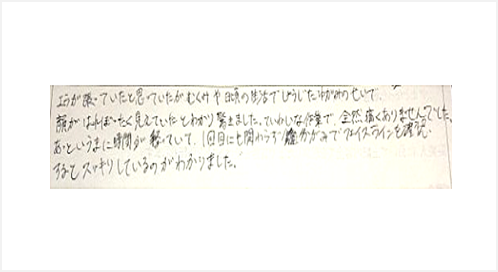 エラが張っていたと思っていたがむくみや日頃の生活でしょうじたゆがみのせいで、
顔がはれぼったく見えていたとわかり驚きました。ていねいな作業で、全然痛くありませんでした。
あっというまに時間が経っていて、1回目にも関わらず鏡でフェイスラインを確認
するとスッキリしているのがわかりました。